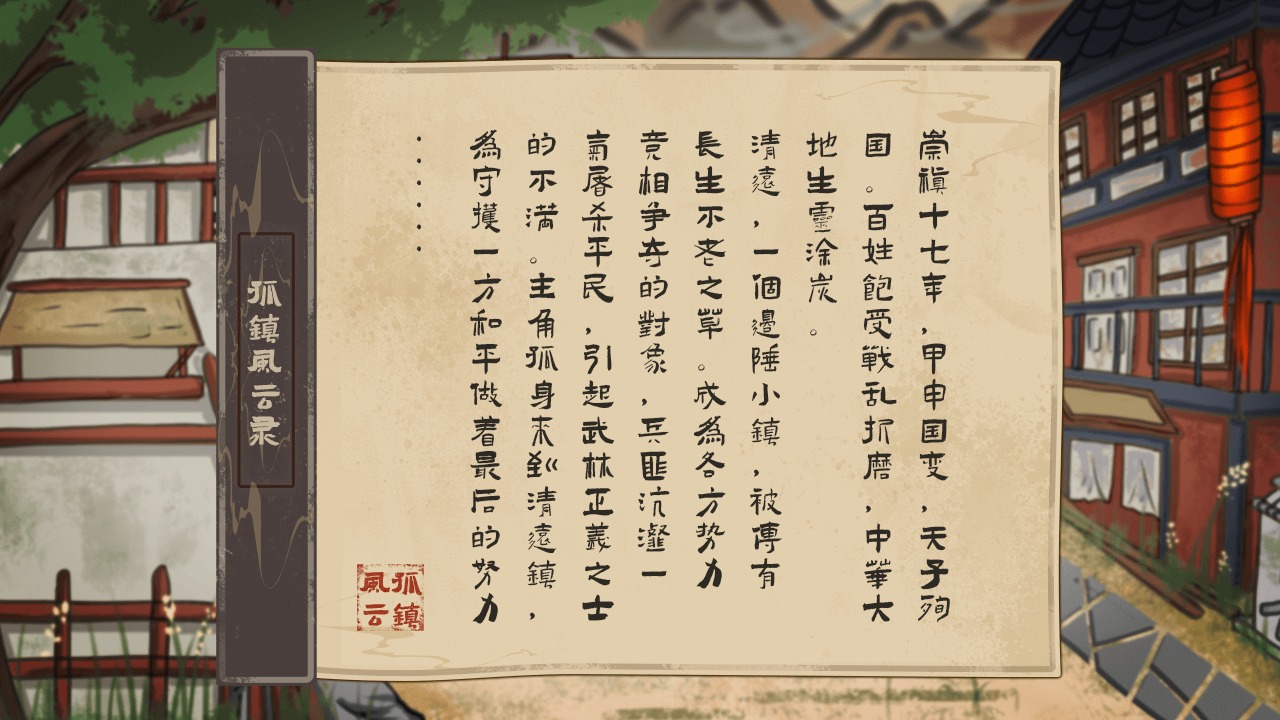 崇禎十七年，甲申国变，天子殉
国。百姓飽受戰乱折磨，中華大
地生靈涂炭。
清遠，一個邊陲小鎮，被傳有
長生不老之草。成為各方势力
竞相争夺的對象，兵匪沆瀣一
氣屠杀平民，引起武林正義之士
的不满。主角孤身來到清遠鎮，
為守護一方和平做着最后的努力
······
孤鎮
風云
孤鎮風云录